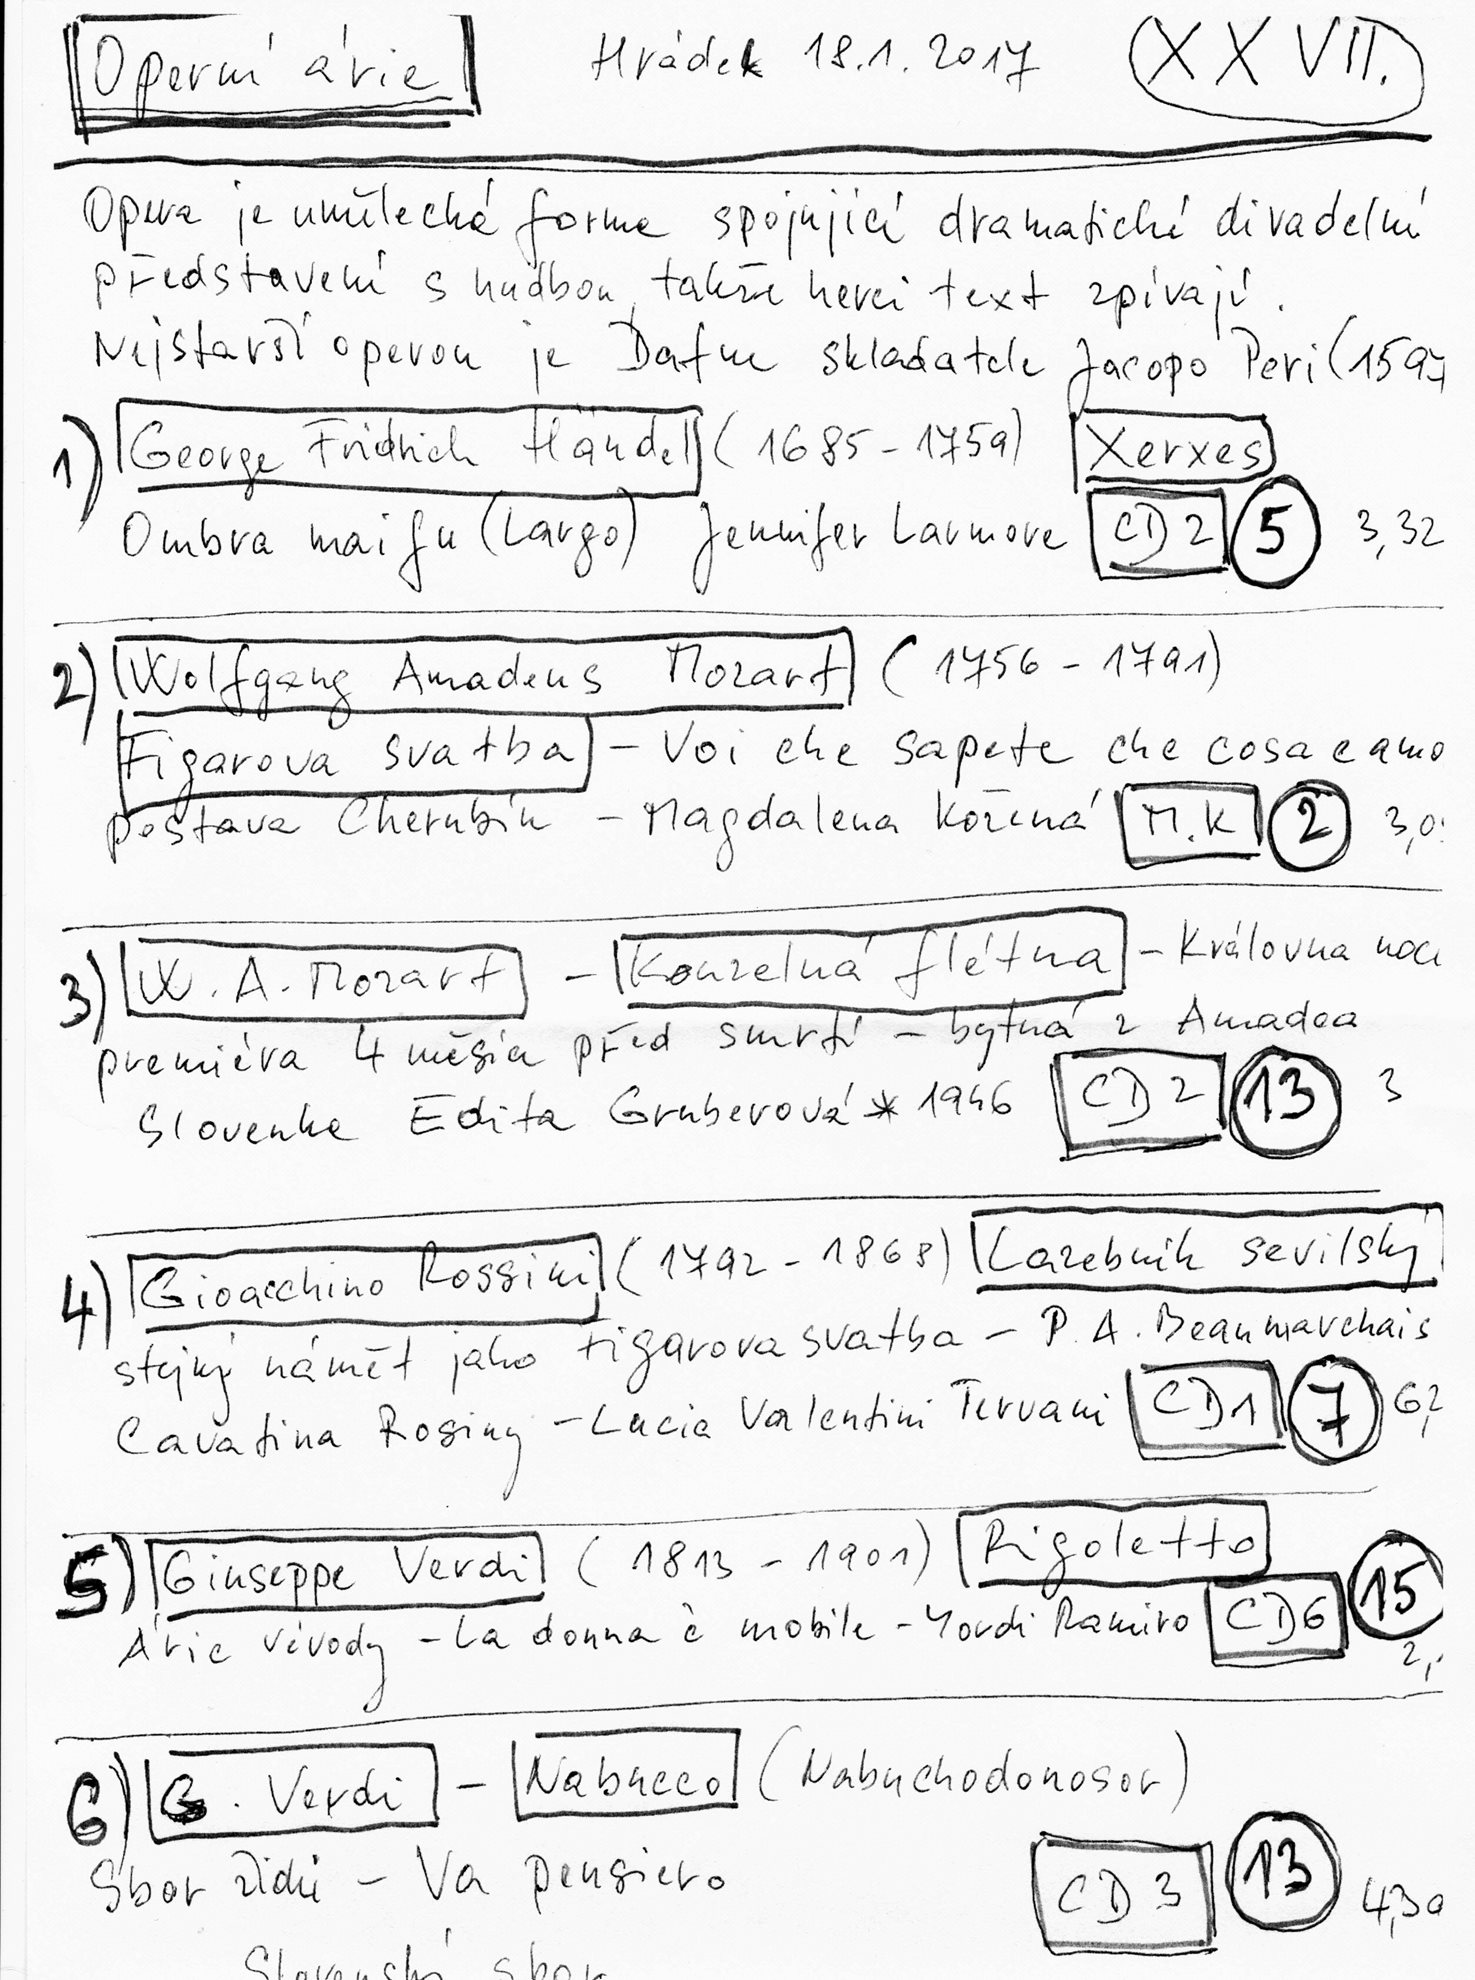 Operní árie Hrádek 18.1.2017 XXVII.
Opera je umělecká forma spojující dramatické divadelní
představení s hudbou, takže herci text zpívají.
Nejstarší operou je Dafne skladatele Jacopo Peri (1597
1) George Fridrich Händel (1685-1759) Xerxes
Ombra mai fu (Largo) Jennifer Larmore CD 2 5 3,32
2) Wolfgang Amadeus Mozart (1756-1791)
Figarova svatba - Voi che sapete che cosa e amo
postava Cherubín - Magdalena Kožená M.K 2 3,0
3) W. A. Mozart - Kouzelná flétna - Královna noci
premiéra 4 měsíce před smrtí - bytná z Amadea
Slovenka Edita Gruberová * 1946 CD 2 13 3
4) Gioacchino Rossini (1792-1868) Lazebník sevilský
stejný námět jako Figarova svatba - P. A. Beaumarchais
Cavatina Rosiny - Lucia Valentini Terrani CD1 7 6,2
5) Giuseppe Verdi (1813-1901) Rigoletto
Árie vévody - La donna è mobile - Yordi Ramiro CD6 15
2,
6) G. Verdi - Nabucco (Nabuchodonosor)
Sbor židů - Va pensiero CD 3 13 4,30
Slovenský sbor